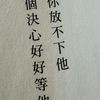 你放不下他
個決心好好等他